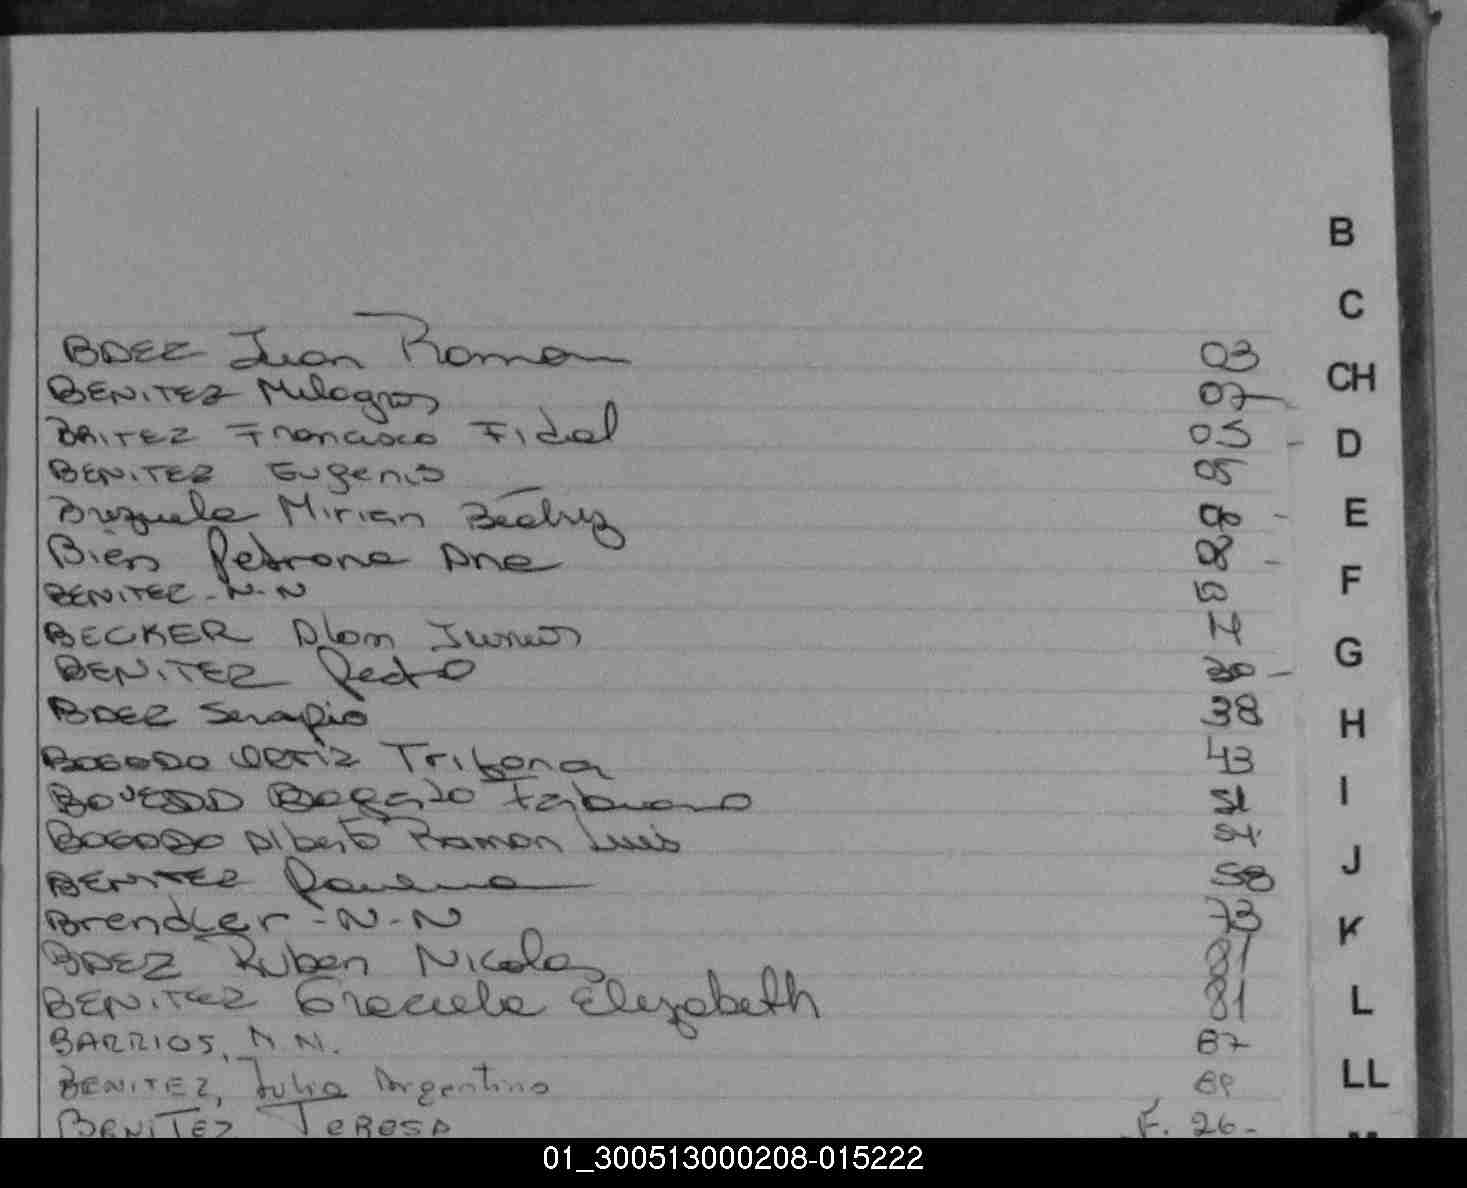 B
C
BAEZ Juan Ramon 03
CH
BENITEZ Milagros 07
BRITEZ Francisco Fidel 05
D
BENITEZ Eugenio 05
Brizuela Mirian Beatriz 08
E
Bien Petrona Ana 08
F
BENITEZ - N - N
BECKER Alan Junior
G
BENITEZ Pedro 30
BAEZ Serapio 38
H
BOGADO ORTIZ Trifona 43
I
Fabiano 51
BOGADO Alberto Ramon Luis
J
BENITEZ 58
K
Brendler - N - N 73
BAEZ Ruben Nicolas 81
L
BENITEZ Graciela Elizabeth 81
BARRIOS, N.N. 87
LL
BENITEZ, Julio Argentino
BENITEZ TERESA F. 26-
01_300513000208-015222